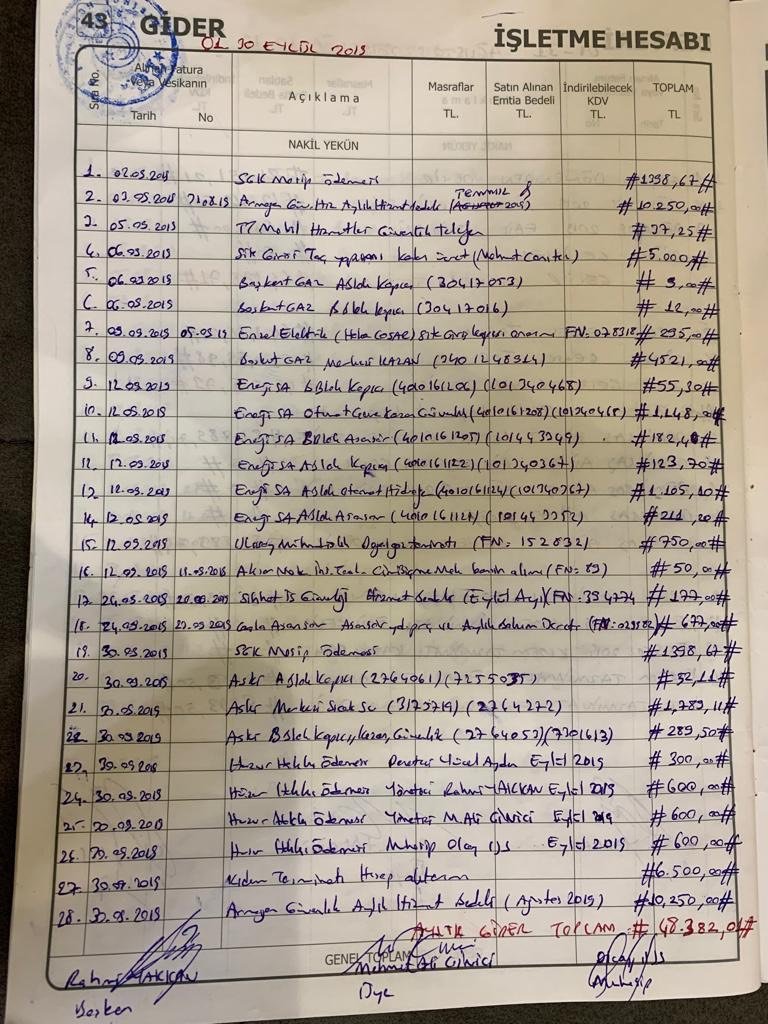 43 GİDER
01 30 EYLÜL 2019
İŞLETME HESABI
Sıra No.
Alınan Fatura
veya Vesikanın
Tarih No
Açıklama
Masraflar
TL.
Satın Alınan
Emtia Bedeli
TL.
İndirilebilecek
KDV
TL.
TOPLAM
TL
NAKİL YEKÜN
1. 02.09.2019 SGK Ödemesi #1398,67#
2. 03.09.2019 Güv. Hiz Aylık Hizmet Bedeli (Temmuz 2019) #10.250,00#
3. 05.09.2019 TT Mobil Hizmetler Güvenlik telefon #37,25#
4. 06.09.2019 Site Girişi Taç yapması #5.000,#
5. 06.09.2019 Başkent GAZ A Blok Kapıcı (30417053) # 9,00#
6. 06.09.2019 Başkent GAZ B Blok kapıcı (30417016) # 12,00#
7. 09.09.2019 05.09.19 Elektrik Site Giriş kapısı onarımı FN:078318 # 295,00#
8. 09.09.2019 Başkent GAZ Merkezi KAZAN #4521,00#
9. 12.09.2019 EnerjiSA B Blok Kapıcı (101340468) #55,30#
10. 12.09.2019 EnerjiSA Güvenlik (4010161208) (101340468) #1,148,00#
11. 12.09.2019 EnerjiSA B Blok Asansör (4010161205) (101443349) #182,40#
12. 12.09.2019 EnerjiSA A Blok Kapıcı (4010161122) (101340367) #123,70#
13. 12.09.2019 EnerjiSA A Blok Hidrofor (4010161124) (101340367) #1.105,10#
14. 12.09.2019 EnerjiSA A Blok Asansör (101443352) #211,20#
15. 12.09.2019 Mühendislik Doğalgaz (FN: 152832) #750,00#
16. 12.09.2019 benzin alımı (FN: 89) # 50,00#
17. 24.09.2019 20.09.2019 Sıhhat İş Güvenliği Hizmet Bedeli (Eylül Ayı) FN:394774 # 177,00#
18. 24.09.2019 Asansör ve Aylık Bakım Ücreti # 677,00#
19. 30.09.2019 SGK Ödemesi #1398,67#
20. 30.09.2019 Aski A Blok Kapıcı (2764061) (7255035) #52,11#
21. 30.09.2019 Aski Merkezi Sıcak Su (2764272) #1,789,11#
22. 30.09.2019 Aski B Blok Kapıcı, Kazan, Güvenlik (2764053) (7301613) # 289,50#
23. 30.09.2019 Huzur Hakkı Ödemesi Denetçi Yücel Aydın Eylül 2019 # 300,00#
24. 30.09.2019 Huzur Hakkı Ödemesi Yönetici Eylül 2019 #600,00#
25. 30.09.2019 Huzur Hakkı Ödemesi Yönetici M.Ali Eylül 2019 # 600,00#
26. 30.09.2019 Huzur Hakkı Ödemesi Muhasip Olcay Eylül 2019 # 600,00#
27. 30.09.2019 Kıdem Tazminatı Hesap aktarım #6.500,00#
28. 30.09.2019 Güvenlik Aylık Hizmet Bedeli (Ağustos 2019) #10,250,00#
AYLIK GİDER TOPLAM #48.382,01#
GENEL TOPLAM
Mehmet Ali
Olcay
Başkan
Üye
Muhasip